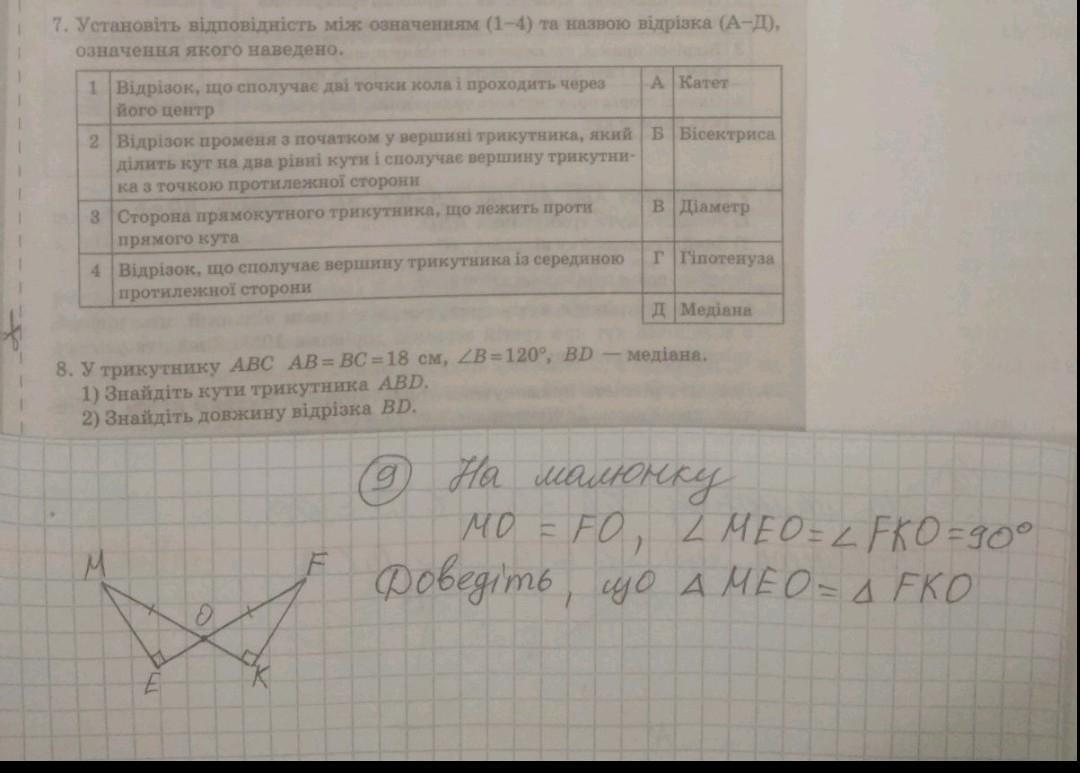 7. Установіть відповідність між означенням (1–4) та назвою відрізка (А–Д),
означення якого наведено.
1 Відрізок, що сполучає дві точки кола і проходить через А Катет
його центр
2 Відрізок променя з початком у вершині трикутника, який Б Бісектриса
ділить кут на два рівні кути і сполучає вершину трикутни-
ка з точкою протилежної сторони
3 Сторона прямокутного трикутника, що лежить проти В Діаметр
прямого кута
4 Відрізок, що сполучає вершину трикутника із серединою Г Гіпотенуза
протилежної сторони
Д Медіана
8. У трикутнику ABC AB=BC=18 см, ∠B=120°, BD — медіана.
1) Знайдіть кути трикутника ABD.
2) Знайдіть довжину відрізка BD.
9 На малюнку
MO = FO, ∠MEO=∠FKO=90°
Доведіть, що △MEO=△FKO
M F
O
E K